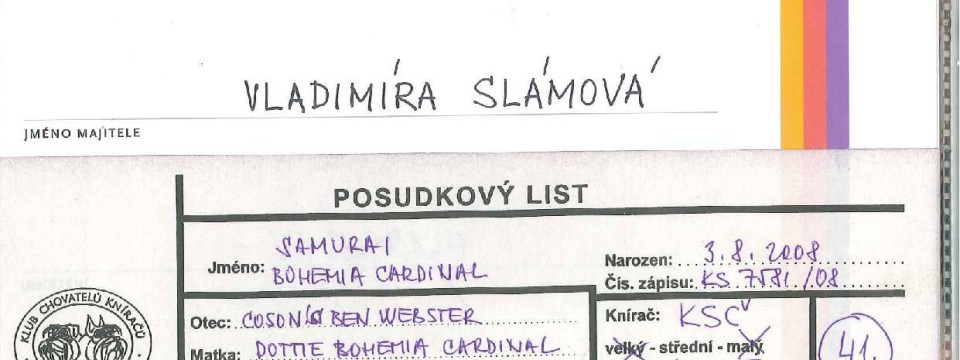 VLADIMÍRA SLÁMOVÁ
JMÉNO MAJITELE
POSUDKOVÝ LIST
SAMURAI
Jméno: BOHEMIA CARDINAL
Narozen: 3.8.2008
Čís. zápisu: KS 7581/08
KLUB CHOVATELŮ KNÍRAČŮ
Otec: COSONIS BEN WEBSTER
Matka: DOTTIE BOHEMIA CARDINAL
Knírač: KSČ
velký - střední - malý
41.